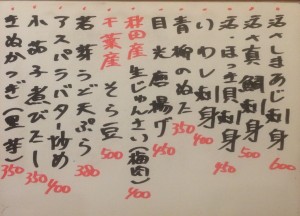 活〆しまあじ刺身 600
活真鯛刺身 500
活ほっき貝刺身 450
いわし刺身 400
青柳のぬた 350
目光唐揚げ 450
秋田産生じゅんさい(梅肉) 400
千葉産そら豆 500
若芽うど天ぷら 380
アスパラバター炒め 400
小茄子煮びたし 350
きぬかつぎ(里芋) 350